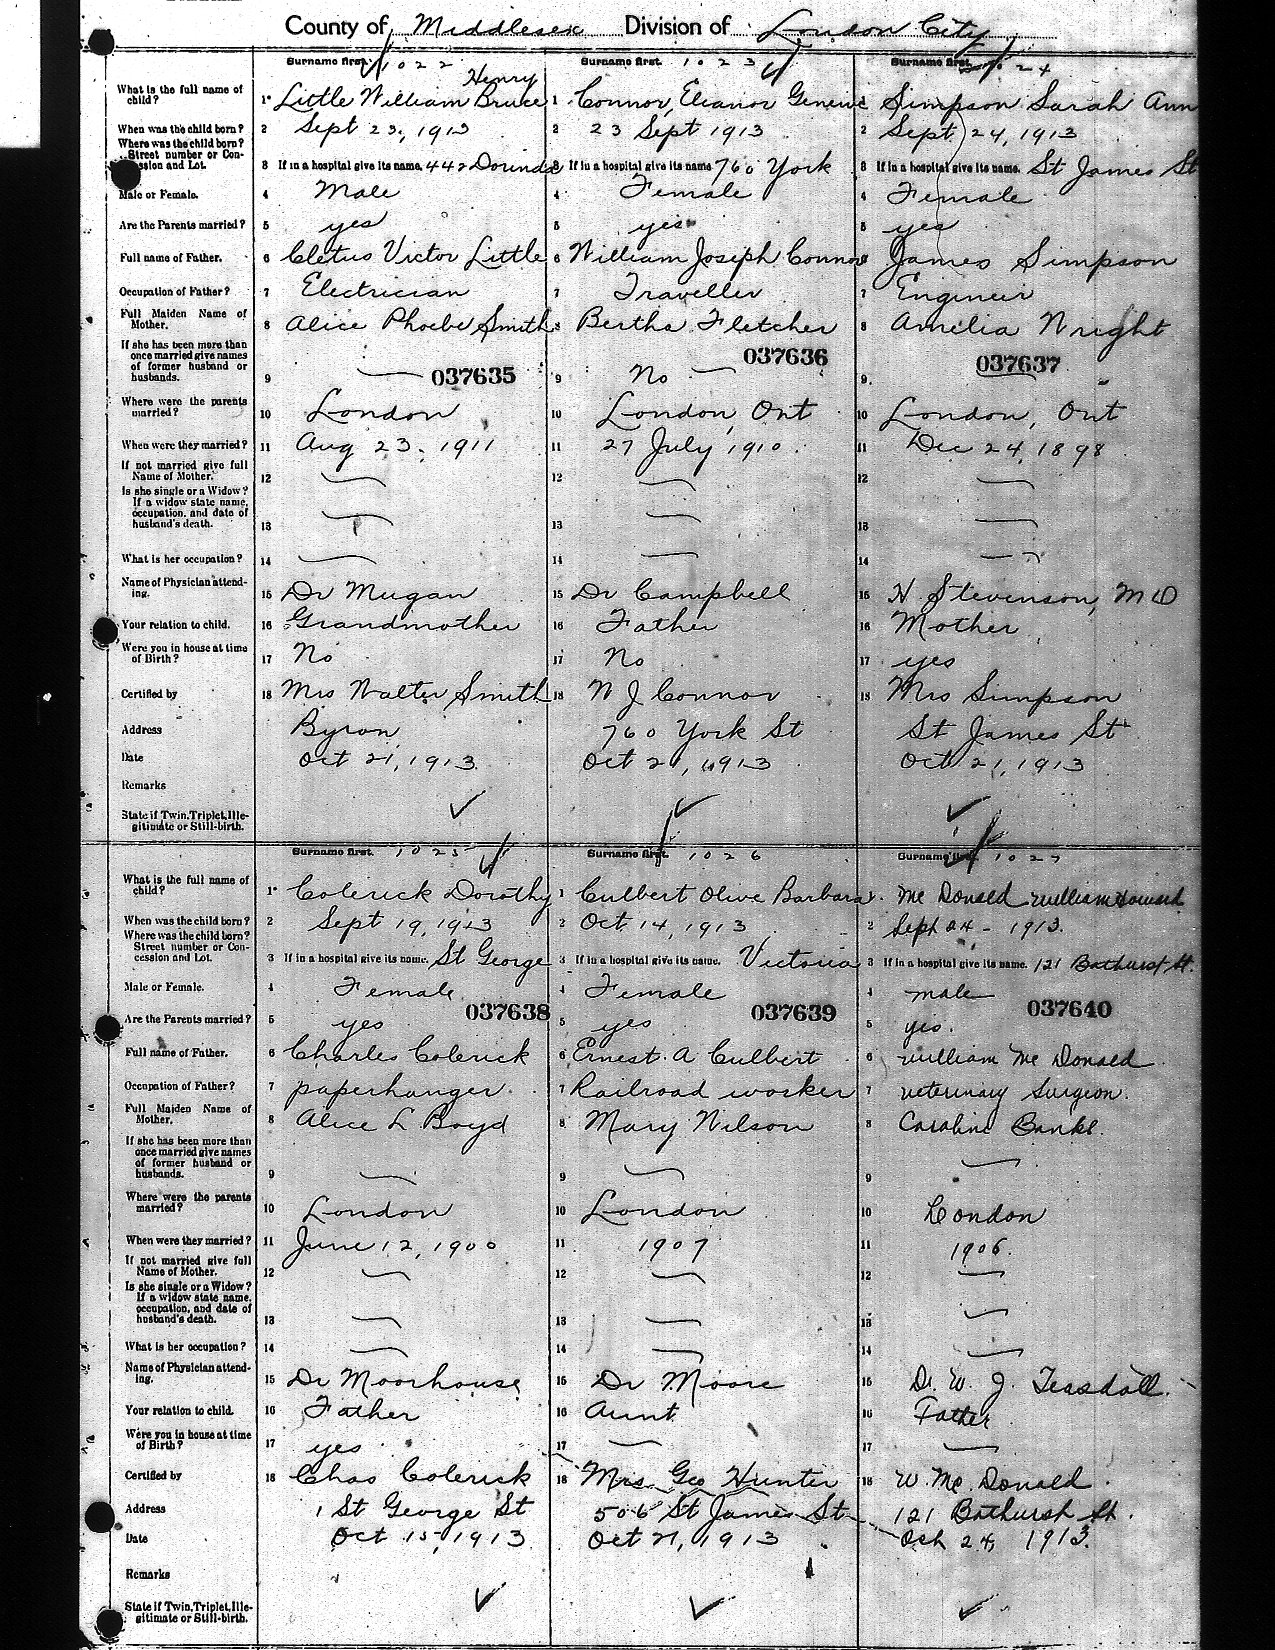 County of Middlesex Division of London City
Surname first. 1022 Surname first. 1023 Surname first. 1024
Henry
What is the full name of child? 1 Little William Bruce 1 Connor, Eleanor 1 Simpson Sarah Ann
When was the child born? 2 Sept 23, 1913 2 23 Sept 1913 2 Sept 24, 1913
Where was the child born?
Street number or Con-
cession and Lot. 3 If in a hospital give its name. 442 3 If in a hospital give its name 760 York 3 If in a hospital give its name. St James St
Male or Female. 4 Male 4 Female 4 Female
Are the Parents married? 5 yes 5 yes 5 yes
Full name of Father. 6 Cletus Victor Little 6 William Joseph Connor 6 James Simpson
Occupation of Father? 7 Electrician 7 Traveller 7 Engineer
Full Maiden Name of
Mother. 8 Alice Phoebe Smith 8 Bertha Fletcher 8 Amelia Wright
If she has been more than
once married give names
of former husband or
husbands. 9 — 037635 9 No — 037636 9. 037637
Where were the parents
married? 10 London 10 London, Ont 10 London, Ont
When were they married? 11 Aug 23, 1911 11 27 July 1910. 11 Dec 24, 1898
If not married give full
Name of Mother. 12 — 12 — 12 —
Is she single or a Widow?
If a widow state name,
occupation, and date of
husband's death. 13 — 13 — 13 —
What is her occupation? 14 — 14 — 14 —
Name of Physician attend-
ing. 15 Dr Mugan 15 Dr Campbell 15 H. Stevenson, MD
Your relation to child. 16 Grandmother 16 Father 16 Mother
Were you in house at time
of Birth? 17 No 17 No 17 yes
Certified by 18 Mrs Walter Smith 18 W J Connor 18 Mrs Simpson
Address Byron 760 York St St James St
Date Oct 21, 1913 Oct 21, 1913 Oct 21, 1913
Remarks
State if Twin, Triplet, Ille-
gitimate or Still-birth.
Surname first. 1025 Surname first. 1026 Surname first. 1027
What is the full name of
child? 1 Colerick Dorothy 1 Culbert Olive Barbara 1. Mc Donald William Howard
When was the child born? 2 Sept 19, 1913 2 Oct 14, 1913 2 Sept 24 - 1913.
Where was the child born?
Street number or Con-
cession and Lot. 3 If in a hospital give its name. St George 3 If in a hospital give its name. Victoria 3 If in a hospital give its name. 121 Bathurst St.
Male or Female. 4 Female 4 Female 4 male
037638 037639 037640
Are the Parents married? 5 yes 5 yes 5 yes.
Full name of Father. 6 Charles Colerick 6 Ernest. A Culbert 6 William Mc Donald
Occupation of Father? 7 paperhanger 7 Railroad worker 7 Veterinary Surgeon.
Full Maiden Name of
Mother. 8 Alice L Boyd 8 Mary Wilson 8 Caroline Banks.
If she has been more than
once married give names
of former husband or
husbands. 9 — 9 — 9 —
Where were the parents
married? 10 London 10 London 10 London
When were they married? 11 June 12, 1900 11 1907 11 1906.
If not married give full
Name of Mother. 12 — 12 — 12 —
Is she single or a Widow?
If a widow state name,
occupation, and date of
husband's death. 13 — 13 — 13 —
What is her occupation? 14 — 14 — 14 —
Name of Physician attend-
ing. 15 Dr Moorhouse 15 Dr Moore 15 Dr. W. J. Teasdall.
Your relation to child. 16 Father 16 Aunt 16 Father
Were you in house at time
of Birth? 17 yes 17 — 17 —
Certified by 18 Chas Colerick 18 Mrs. Geo Hunter 18 W. Mc Donald
Address 1 St George St 506 St James St 121 Bathurst St.
Date Oct 15, 1913 Oct 21, 1913 Oct 24, 1913.
Remarks
State if Twin, Triplet, Ille-
gitimate or Still-birth.